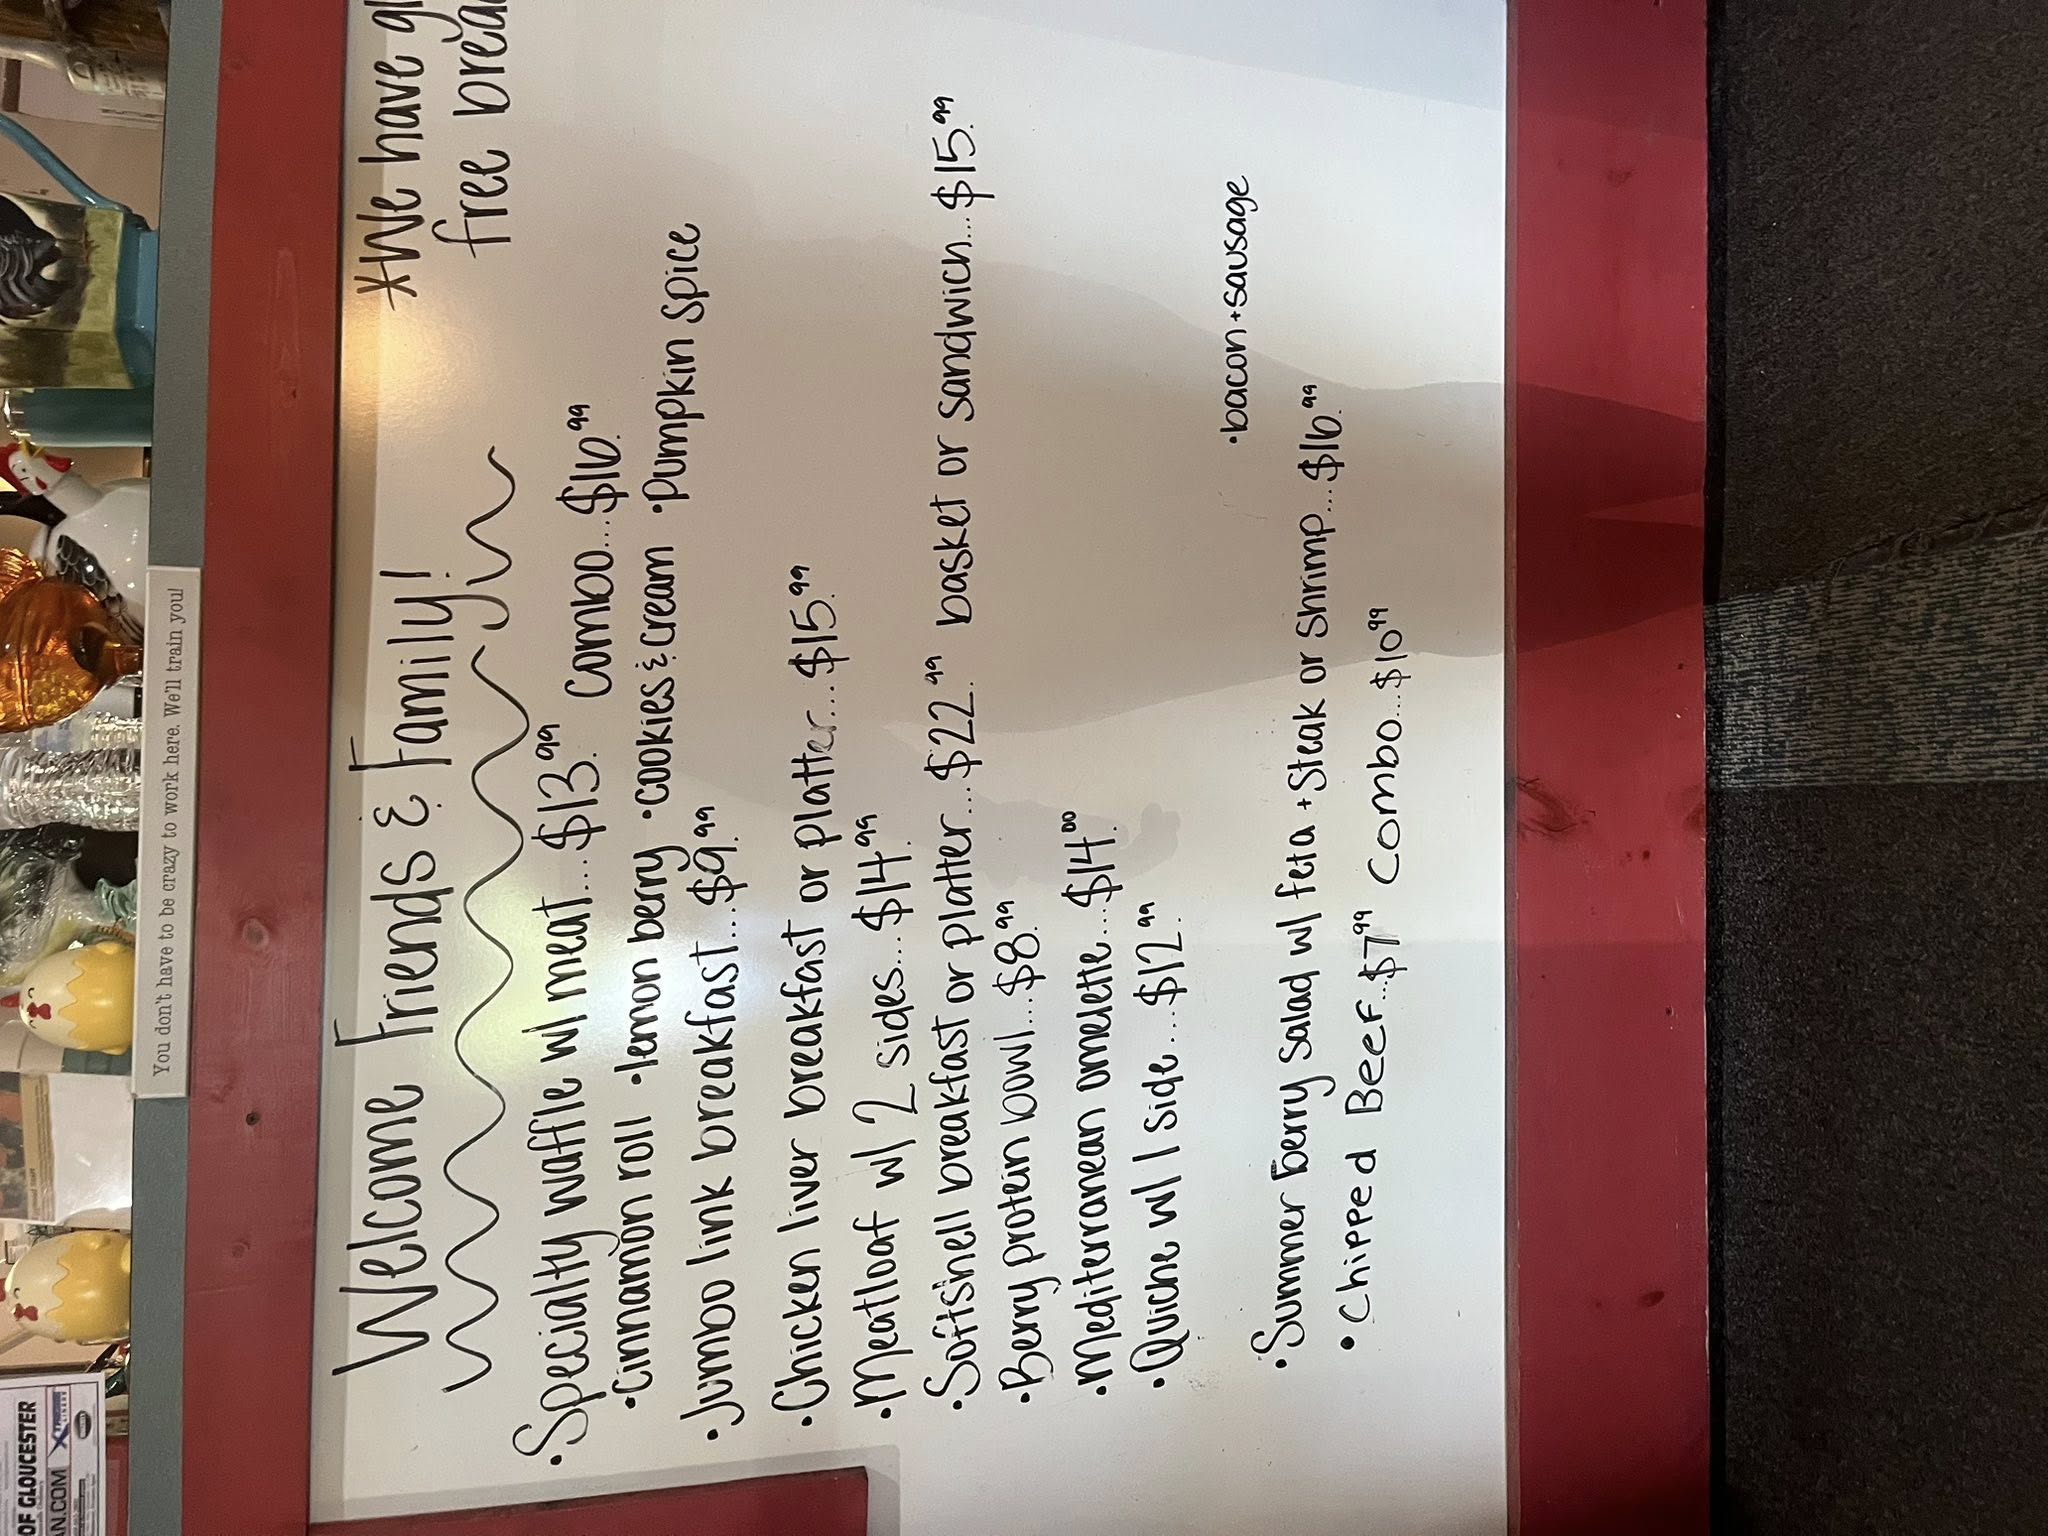 Welcome Friends & Family!
*We have
free
•Specialty waffle w/ meat....$13.99 combo...$16.99
•Cinnamon roll •lemon berry •cookies & cream •Pumpkin spice
•Jumbo link breakfast...$9.99
•Chicken liver breakfast or platter...$15.99
•Meatloaf w/ 2 sides...$14.99
•Softshell breakfast or platter...$22.99 basket or sandwich...$15.99
•Berry protein bowl...$8.99
•Mediterranean omelette...$14.00
•Quiche w/ 1 side....$12.99
•bacon+sausage
•Summer berry salad w/ feta +Steak or Shrimp...$16.99
•Chipped Beef...$7.99 Combo...$10.99
You don't have to be crazy to work here. We'll train you!
OF GLOUCESTER
AN.COM